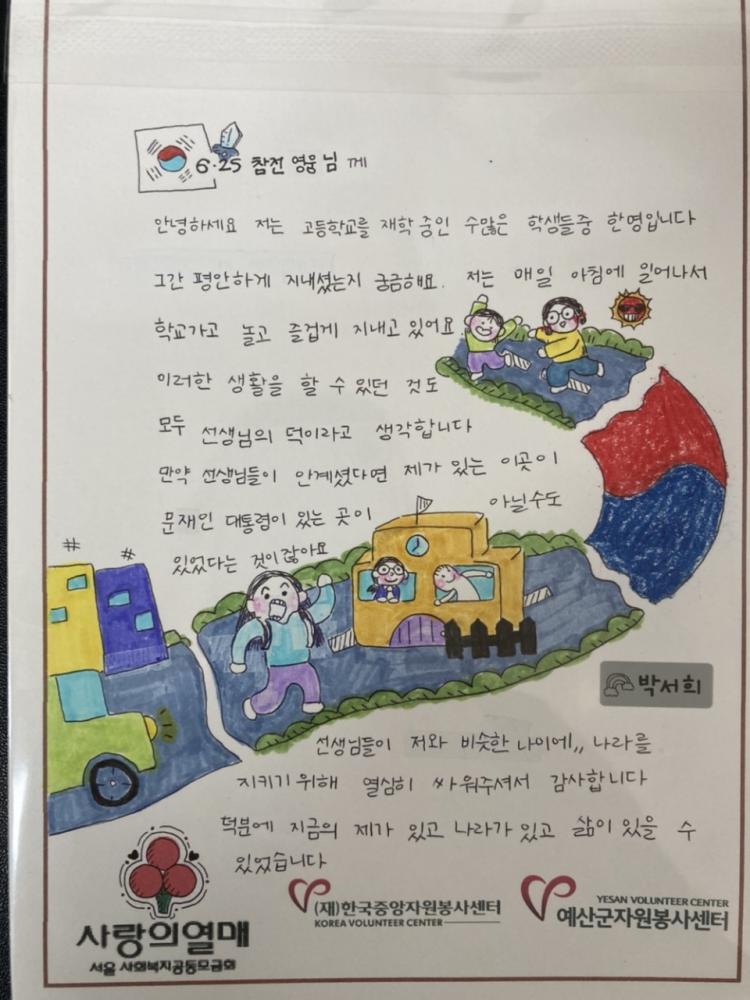 6·25 참전 영웅 님 께
안녕하세요 저는 고등학교를 재학 중인 수많은 학생들중 한명입니다
그간 평안하게 지내셨는지 궁금해요. 저는 매일 아침에 일어나서
학교가고 놀고 즐겁게 지내고 있어요
이러한 생활을 할 수 있던 것도
모두 선생님의 덕이라고 생각합니다
만약 선생님들이 안계셨다면 제가 있는 이곳이
문재인 대통령이 있는 곳이 아닐수도
있었다는 것이잖아요
박서희
선생님들이 저와 비슷한 나이에,, 나라를
지키기 위해 열심히 싸워주셔서 감사합니다
덕분에 지금의 제가 있고 나라가 있고 삶이 있을 수
있었습니다
사랑의열매
서울 사회복지공동모금회
(재)한국중앙자원봉사센터
KOREA VOLUNTEER CENTER
YESAN VOLUNTEER CENTER
예산군자원봉사센터